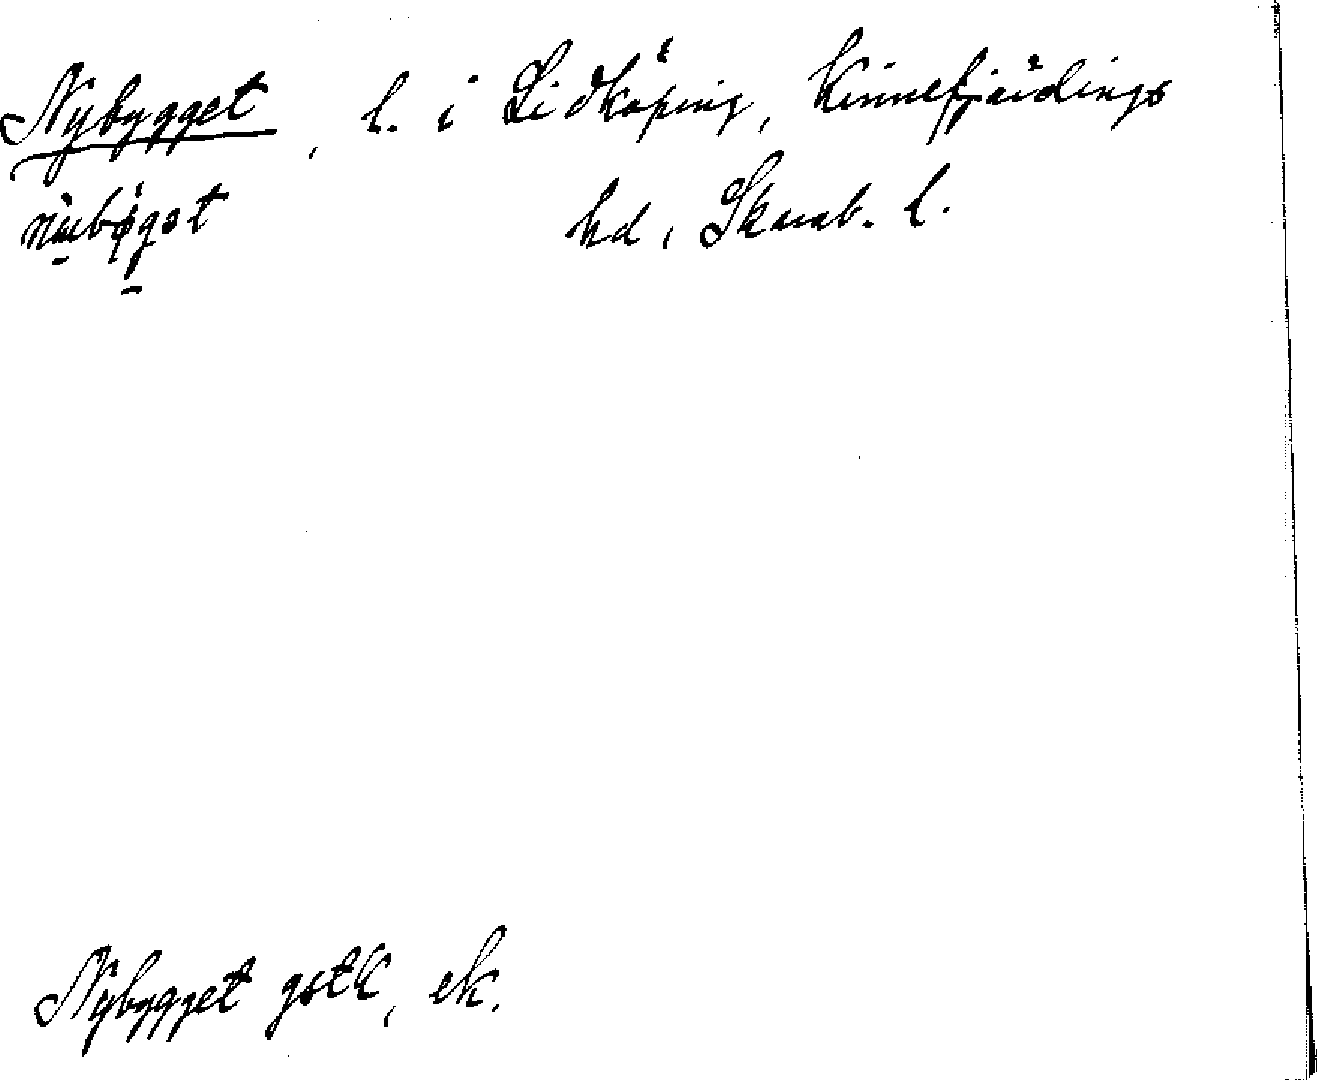 Nybygget, l. i Lidköping, Kinnefjärdings
hd, Skarab. l.
Nybygget gstK, ek.